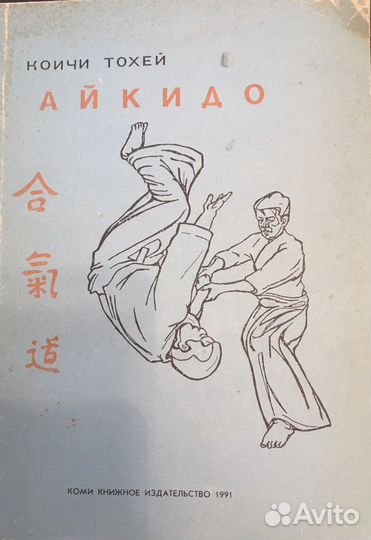 КОИЧИ ТОХЕЙ
АЙКИДО
合
氣
道
КОМИ КНИЖНОЕ ИЗДАТЕЛЬСТВО 1991
Avito